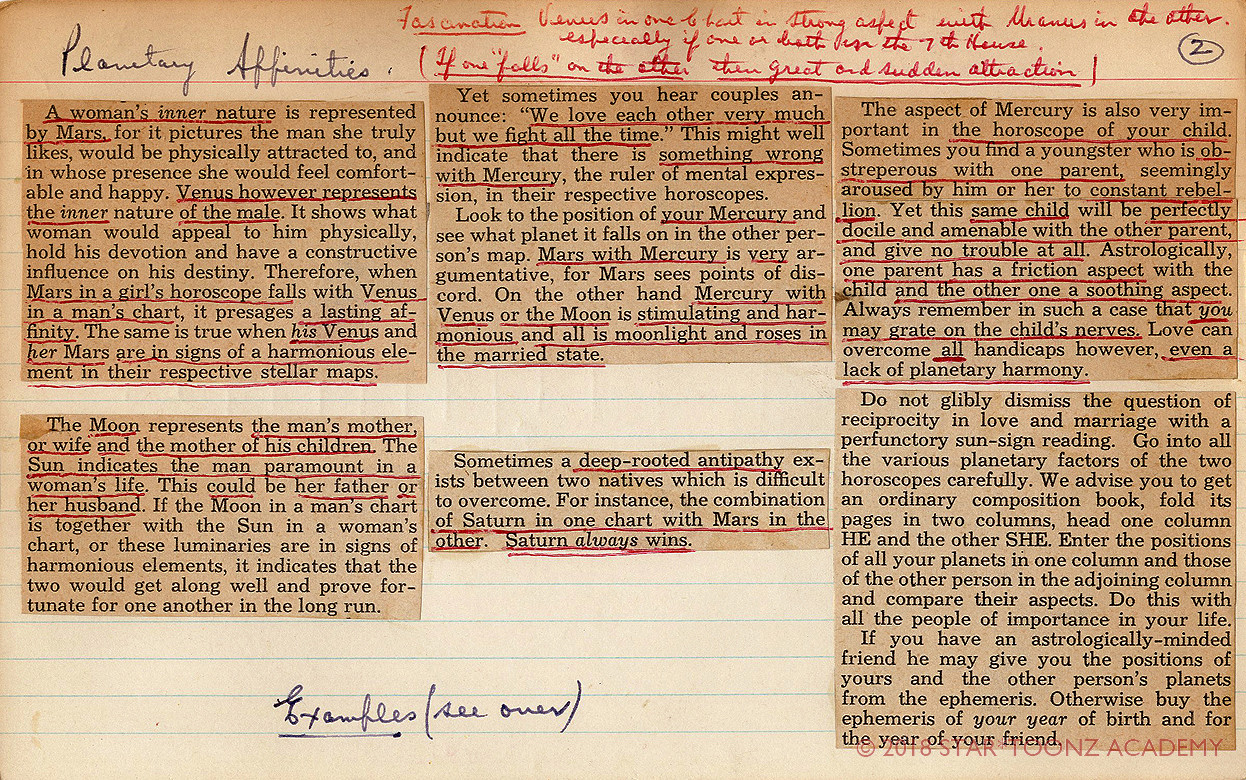 Fascination Venus in one Chart in strong aspect with Uranus in the other.
especially if one or both in the 7th House.
Planetary Affinities. (If one "falls" on the other then great and sudden attraction)
2
A woman's inner nature is represented
by Mars, for it pictures the man she truly
likes, would be physically attracted to, and
in whose presence she would feel comfort-
able and happy. Venus however represents
the inner nature of the male. It shows what
woman would appeal to him physically,
hold his devotion and have a constructive
influence on his destiny. Therefore, when
Mars in a girl's horoscope falls with Venus
in a man's chart, it presages a lasting af-
finity. The same is true when his Venus and
her Mars are in signs of a harmonious ele-
ment in their respective stellar maps.
The Moon represents the man's mother,
or wife and the mother of his children. The
Sun indicates the man paramount in a
woman's life. This could be her father or
her husband. If the Moon in a man's chart
is together with the Sun in a woman's
chart, or these luminaries are in signs of
harmonious elements, it indicates that the
two would get along well and prove for-
tunate for one another in the long run.
Yet sometimes you hear couples an-
nounce: "We love each other very much
but we fight all the time." This might well
indicate that there is something wrong
with Mercury, the ruler of mental expres-
sion, in their respective horoscopes.
Look to the position of your Mercury and
see what planet it falls on in the other per-
son's map. Mars with Mercury is very ar-
gumentative, for Mars sees points of dis-
cord. On the other hand Mercury with
Venus or the Moon is stimulating and har-
monious and all is moonlight and roses in
the married state.
Sometimes a deep-rooted antipathy ex-
ists between two natives which is difficult
to overcome. For instance, the combination
of Saturn in one chart with Mars in the
other. Saturn always wins.
The aspect of Mercury is also very im-
portant in the horoscope of your child.
Sometimes you find a youngster who is ob-
streperous with one parent, seemingly
aroused by him or her to constant rebel-
lion. Yet this same child will be perfectly
docile and amenable with the other parent,
and give no trouble at all. Astrologically,
one parent has a friction aspect with the
child and the other one a soothing aspect.
Always remember in such a case that you
may grate on the child's nerves. Love can
overcome all handicaps however, even a
lack of planetary harmony.
Do not glibly dismiss the question of
reciprocity in love and marriage with a
perfunctory sun-sign reading. Go into all
the various planetary factors of the two
horoscopes carefully. We advise you to get
an ordinary composition book, fold its
pages in two columns, head one column
HE and the other SHE. Enter the positions
of all your planets in one column and those
of the other person in the adjoining column
and compare their aspects. Do this with
all the people of importance in your life.
If you have an astrologically-minded
friend he may give you the positions of
yours and the other person's planets
from the ephemeris. Otherwise buy the
ephemeris of your year of birth and for
the year of your friend.
Examples (see over)
© 2018 STAR*TOONZ ACADEMY